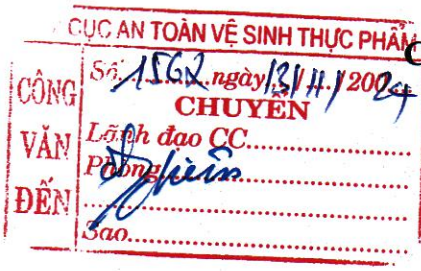 CỤC AN TOÀN VỆ SINH THỰC PHẨM
CÔNG VĂN ĐẾN
Số: 1562 ngày 13/11/2024
CHUYỂN
Lãnh đạo CC
Phòng
Sao